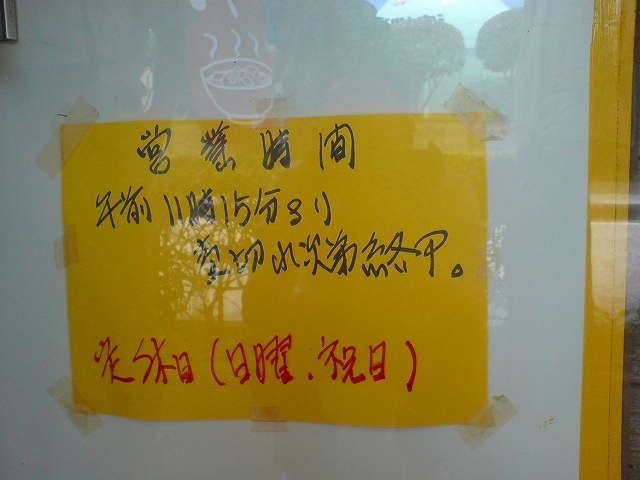 営業時間
午前11時15分より
売切れ次第終了。
定休日(日曜、祝日)